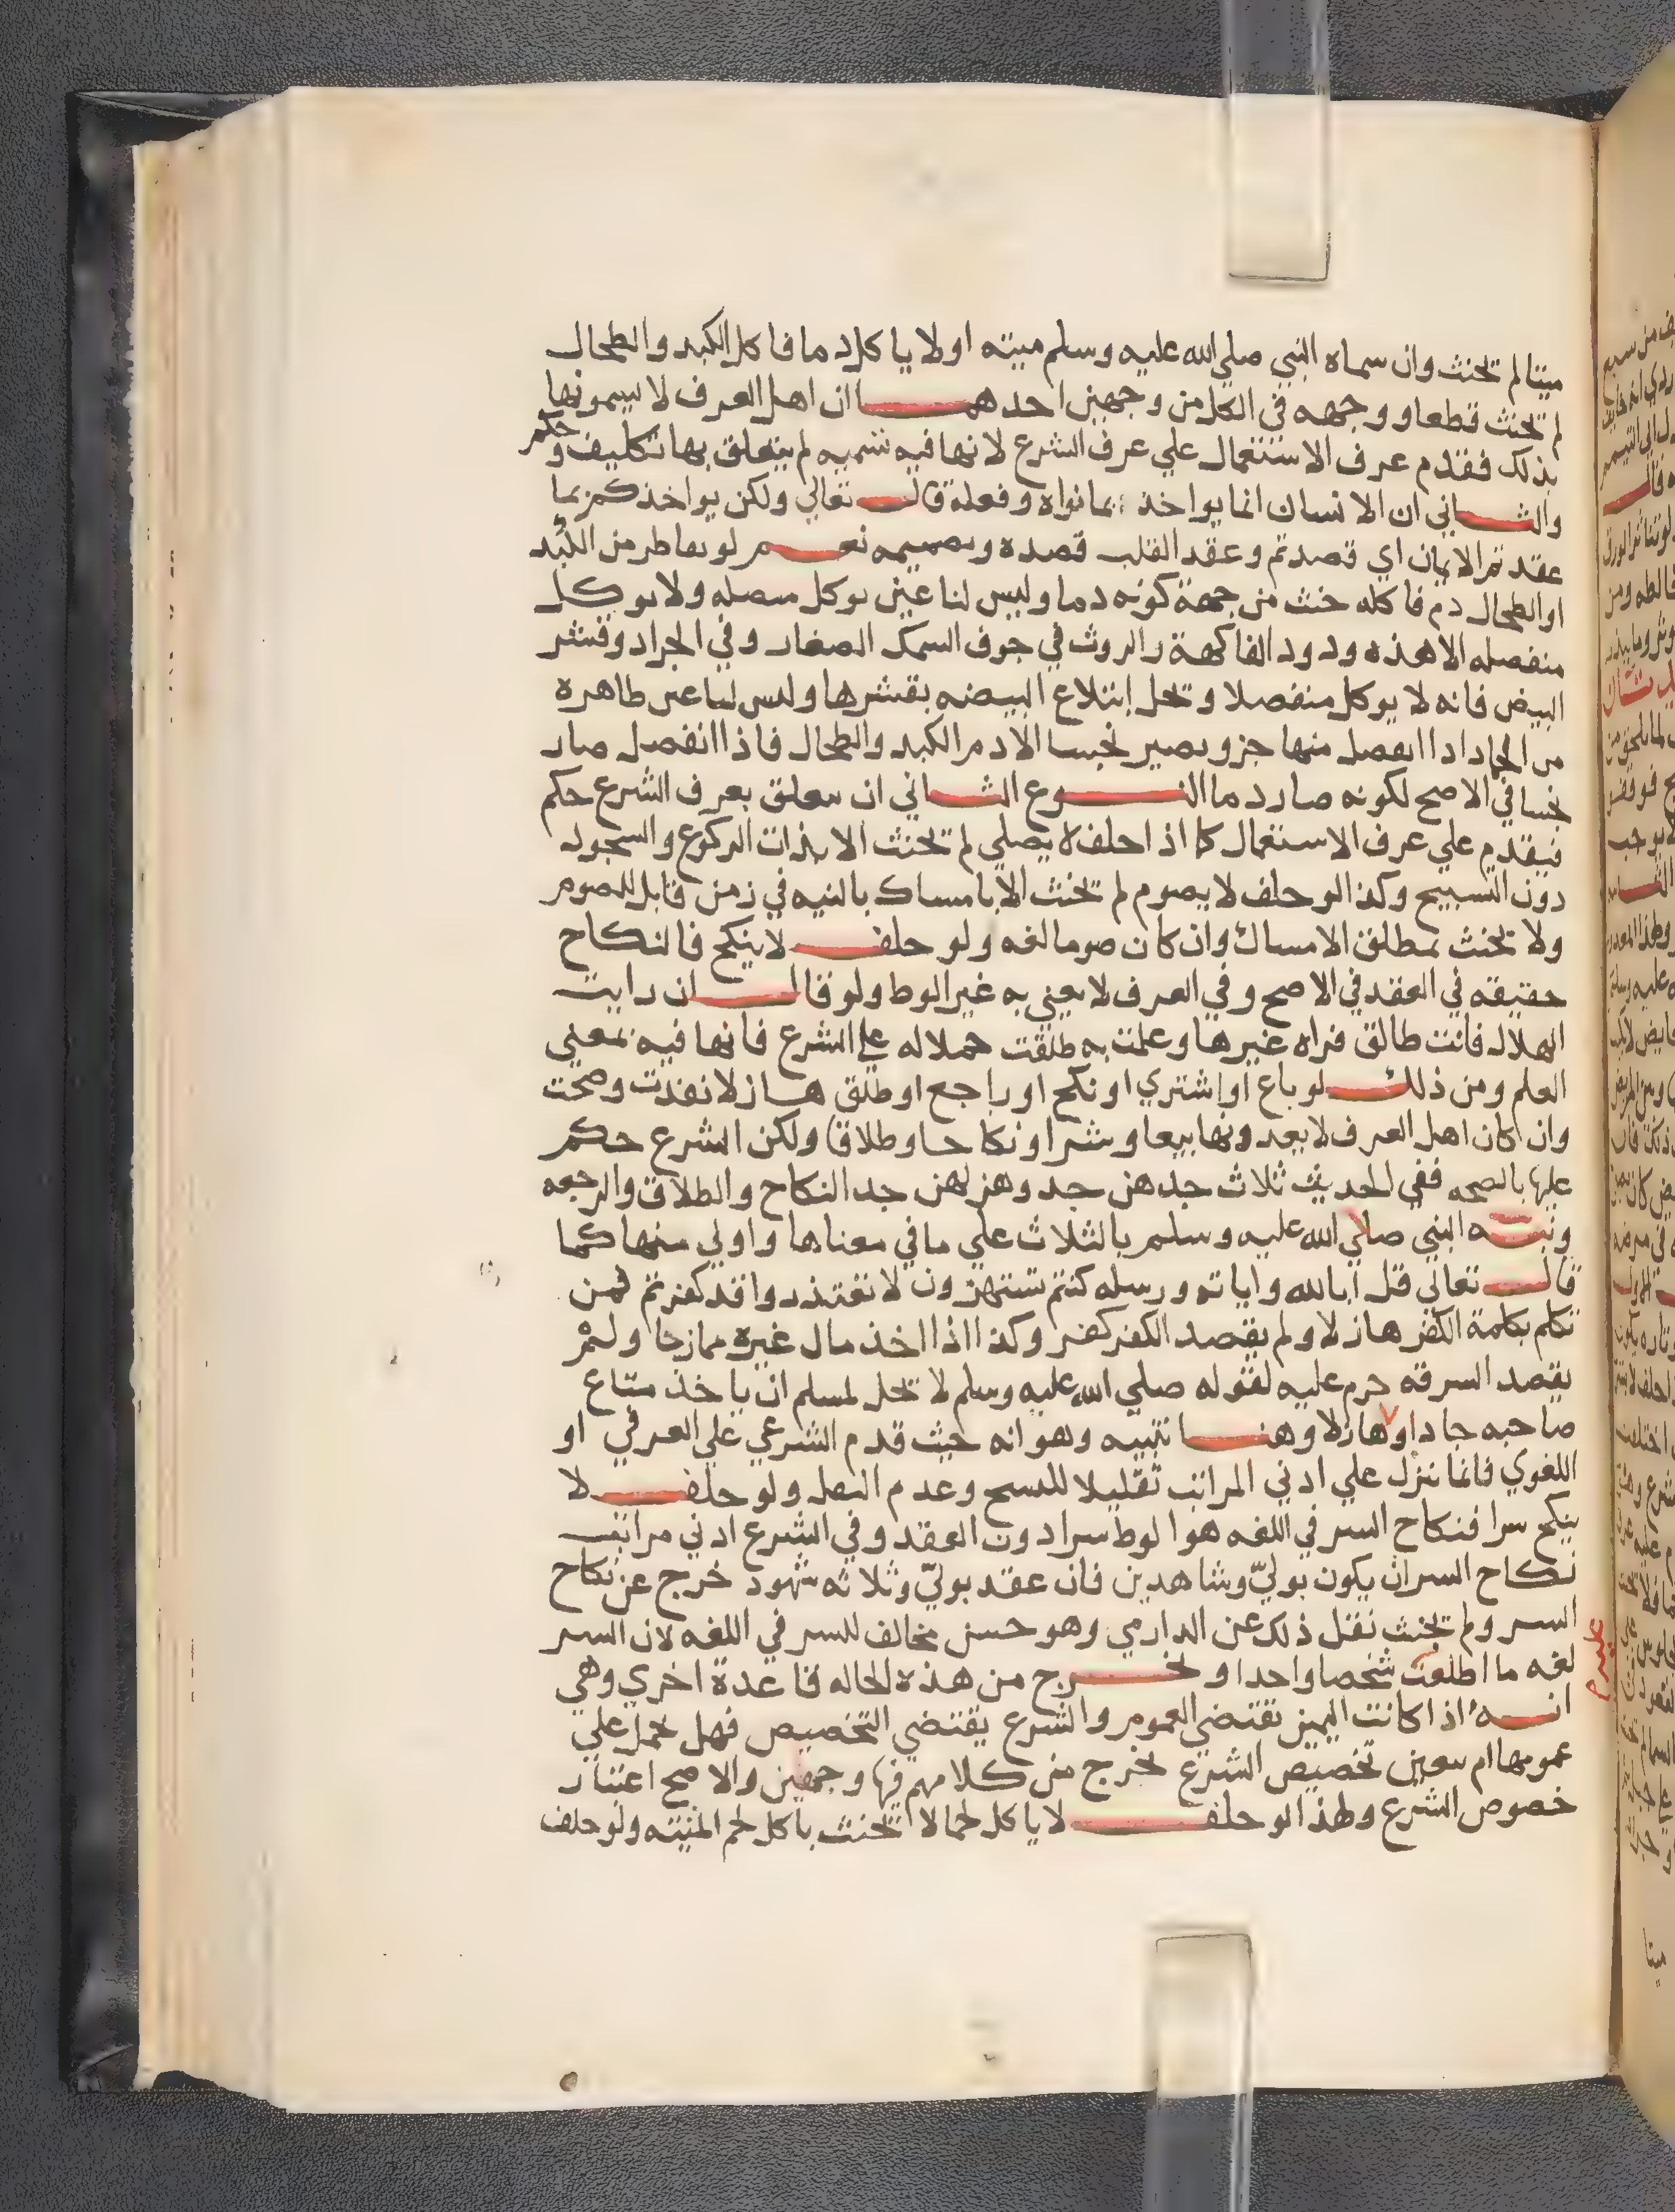 ميتا لم تحنث وان سماه النبي صلي الله عليه وسلم ميته اولا ياكل دما فاكل الكبد والطحال
لم تحنث قطعا ووجهه في الكل من وجهين احدهما ان اهل العرف لا يسمونها
بذلك فقدم عرف الاستعمال علي عرف الشرع لانها فيه تسميه لم يتعلق بها تكليف وحكم
والثاني ان الانسان انما يواخذ بما نواه وفعله قال تعالي ولكن يواخذكم بما
عقدتم الايمان اي قصدتم وعقد القلب قصده وتصميمه نعم لو تقاطر من الكبد
او الطحال دم فاكله حنث من جهة كونه دما وليس لنا عين توكل متصله ولا توكل
منفصله الا هذه ودود الفاكهة والروث في جوف السمك الصغار وفي الجراد وقشر
البيض فانه لا يوكل منفصلا وتحل ابتلاع البيضه بقشرها وليس لنا عين طاهره
من الجماد اذا انفصل منها جزو يصير نجسا الا دم الكبد والطحال فاذا انفصل صار
نجسا في الاصح لكونه صار دما النوع الثاني ان يتعلق بعرف الشرع حكم
فيقدم علي عرف الاستعمال كما اذا حلف لا يصلي لم تحنث الا بذات الركوع والسجود
دون التسبيح وكذا لو حلف لا يصوم لم تحنث الا بامساك بالنيه في زمن قابل للصوم
ولا تحنث بمطلق الامساك وان كان صوما لغه ولو حلف لا ينكح فالنكاح
حقيقه في العقد في الاصح وفي العرف لا يعني به غير الوط ولو قال ان رايت
الهلال فانت طالق فراه غيرها وعلمت به طلقت حملا له علي الشرع فانها فيه بمعني
العلم ومن ذلك لو باع او اشتري او نكح او راجع او طلق هازلا نفذت وصحت
وان كان اهل العرف لا يعدونها بيعا وشرا ونكاحا وطلاقا ولكن الشرع حكم
عليها بالصحه ففي الحديث ثلاث جدهن جد وهزلهن جد النكاح والطلاق والرجعه
ونبه النبي صلي الله عليه وسلم بالثلاث علي ما في معناها واولي منها كما
قال تعالي قل ابالله واياته ورسله كنتم تستهزون لا تعتذروا قد كفرتم فمن
تكلم بكلمة الكفر هازلا ولم يقصد الكفر كفر وكذا اذا اخذ مال غيره مازحا ولم
يقصد السرقه حرم عليه لقوله صلي الله عليه وسلم لا تحل لمسلم ان ياخذ متاع
صاحبه جادا او هازلا وهنا تنبيه وهو انه حيث قدم الشرعي علي العرفي او
اللغوي فانما ننزل علي ادني المراتب تقليلا للنسخ وعدم النقل ولو حلف لا
ينكح سرا فنكاح السر في اللغه هو الوط سرا دون العقد وفي الشرع ادني مراتب
نكاح السر ان يكون بوليّ وشاهدين فان عقد بوليّ وثلاثه شهود خرج عن نكاح
السر ولم تحنث نقل ذلك عن الدارمي وهو حسن مخالف للسر في اللغه لان السر
لغه ما اطلعت شخصا واحدا و نخرج من هذه الحاله قاعدة اخري وهي
انه اذا كانت اليمين تقتضي العموم والشرع يقتضي التخصيص فهل نحمل علي
عمومها ام يتعين تخصيص الشرع نخرج من كلامهم فيها وجهين والاصح اعتبار
خصوص الشرع ولهذا لو حلف لا ياكل لحما لا تحنث باكل لحم الميته ولو حلف